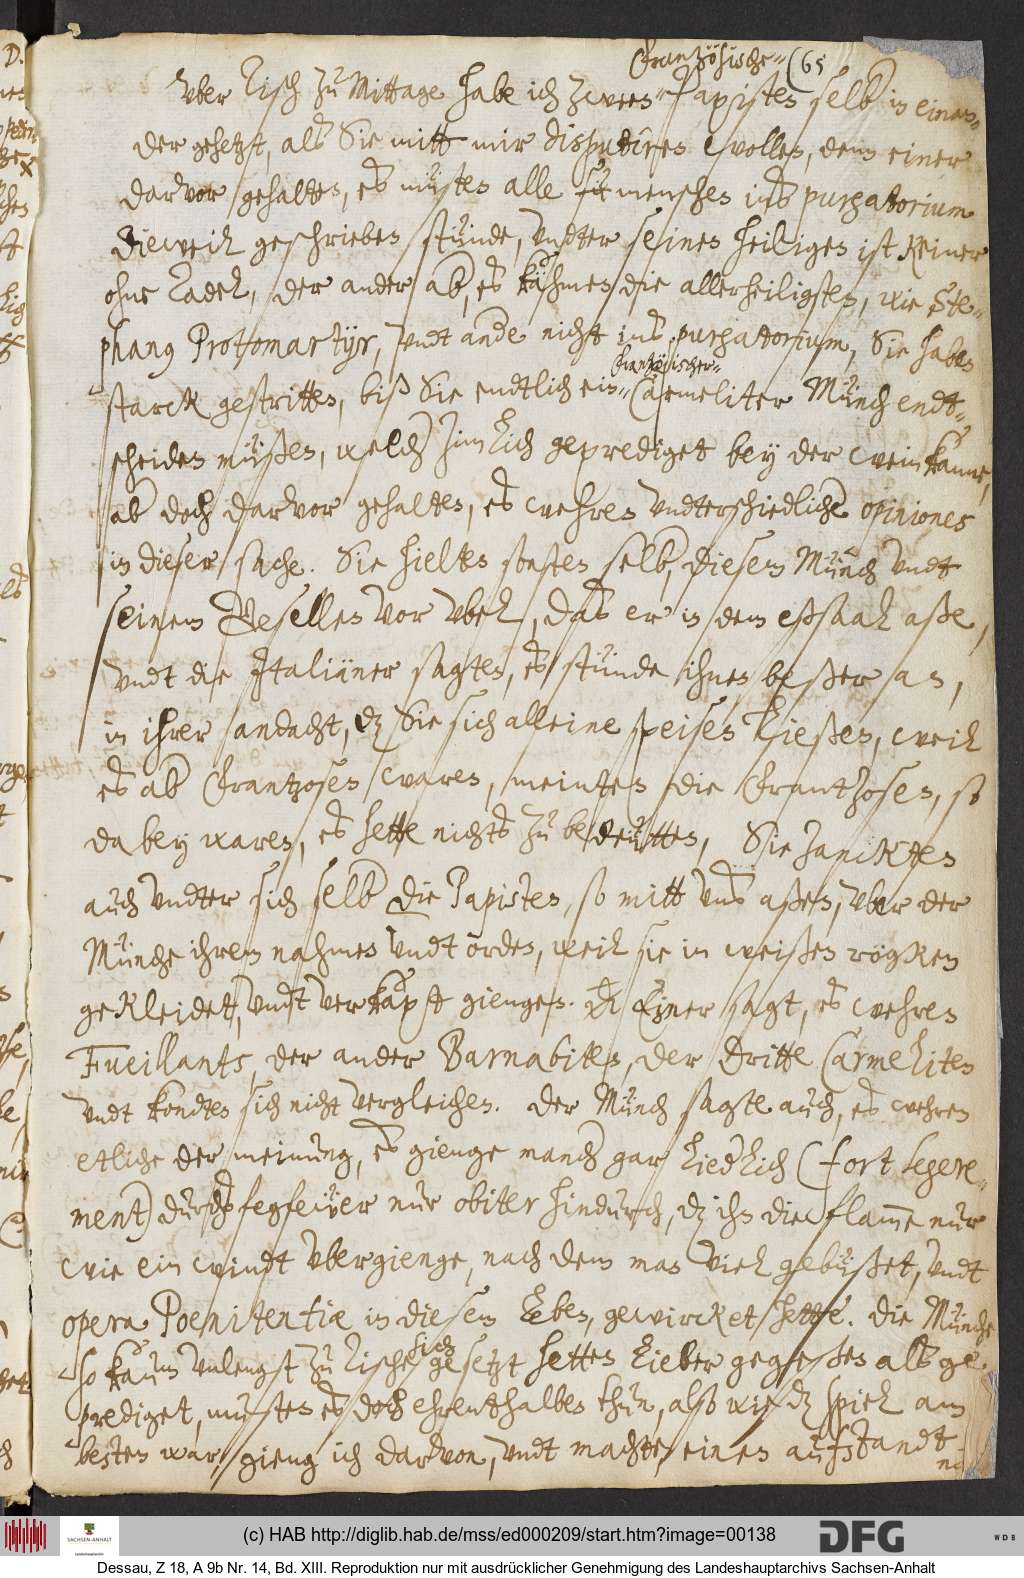 frantzösische (65
Vber Tisch zu Mittage habe ich zween Papisten selb in einan=
der gehetzt, alß Sie mitt mir disputiren wollen, denn einer
darvor gehalten, es müsten alle menschen ins purgatorium
dieweil geschrieben stünde, vndter seinen heiligen ist Keiner
ohne Tadel, der ander ab, es kähmen die allerheiligsten, wie Ste=
phanus Protomartyr, vndt ande nicht ins purgatorium, Sie haben
starck gestritten, biß Sie endtlich ein frantzösischer Carmeliter Münch endt=
scheiden müßen, welch zimlich geprediget bey der weinkanne,
ab doch darvor gehalten, es wehren vndterschiedliche opiniones
in dieser sache. Sie hielten sonsten selb, diesem Münch vndt
seinem Gesellen vor vbel, das er in dem eßsaal aße,
vndt die Italiäner sagten, es stünde ihnen beßer an,
in ihrer andacht, dz Sie sich alleine speisen ließen, weil
es ab Frantzosen waren, meinten die Frantzosen, so
dabey waren, es hette nichts zu bedeütten, Sie zanckten
auch vndter sich selb die Papisten, so mitt vns aßen, vber der
Münche ihrem nahmen vndt orden, weil sie in weißen rögken
gekleidet, vndt verkapt giengen. Einer sagt, es wehren
Fueillants, der ander Barnabiten, der dritte Carmeliten
vndt kondten sich nicht vergleichen. Der Münch sagte auch, es wehren
etliche der meinung, es gienge manch gar liedlich (fort legere=
ment) durchs fegfeüer nur obiter hindurch, dz ihn die flamme nur
wie ein windt vbergienge, nach dem man viel gebüßet, vndt
opera Poenitentiæ in diesem Leben, gewircket hette. Die Münche
so kaum vnlengst zu Tische sich gesetzt hetten lieber gegeßen alß ge=
prediget, musten es doch ehrenthalben thun, alß wie dz spiel am
besten war, gieng ich darvon, vndt machte einen aufstandt
(c) HAB http://diglib.hab.de/mss/ed000209/start.htm?image=00138
SACHSEN-ANHALT
DFG
WDB
Dessau, Z 18, A 9b Nr. 14, Bd. XIII. Reproduktion nur mit ausdrücklicher Genehmigung des Landeshauptarchivs Sachsen-Anhalt